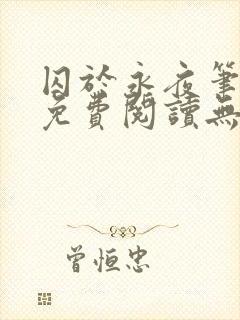 囚於永夜筆
免費閱讀無
曾恒忠